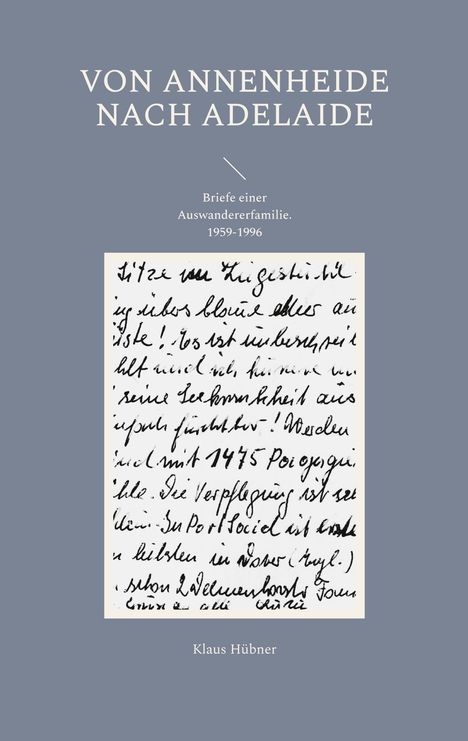 VON ANNENHEIDE
NACH ADELAIDE
Briefe einer
Auswandererfamilie.
1959-1996
Sitze im Liegestuhl
übers blaue Meer
! Es ist unbeschrei
und ich
seine Seekrankheit aus
furchtbar! Werden
sind mit 1475
Die Verpflegung ist
In Port Said ist erste
in Dover (Engl.)
schon 2 Delmenhorster Fam
Klaus Hübner